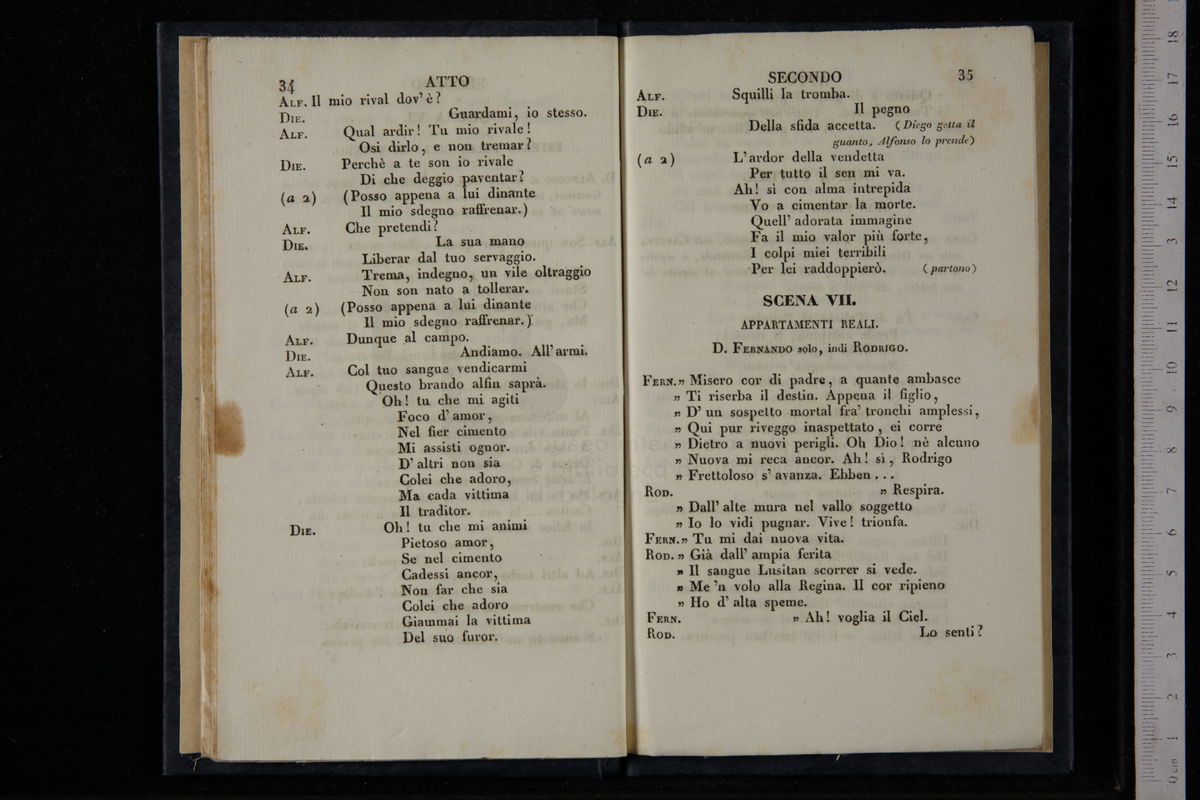 34 ATTO
ALF. Il mio rival dov' è?
DIE. Guardami, io stesso.
ALF. Qual ardir! Tu mio rivale!
Osi dirlo, e non tremar?
DIE. Perchè a te son io rivale
Di che deggio paventar?
(a 2) (Posso appena a lui dinante
Il mio sdegno raffrenar.)
ALF. Che pretendi?
DIE. La sua mano
Liberar dal tuo servaggio.
ALF. Trema, indegno, un vile oltraggio
Non son nato a tollerar.
(a 2) (Posso appena a lui dinante
Il mio sdegno raffrenar.)
ALF. Dunque al campo.
DIE. Andiamo. All' armi.
ALF. Col tuo sangue vendicarmi
Questo brando alfin saprà.
Oh! tu che mi agiti
Foco d' amor,
Nel fier cimento
Mi assisti ognor.
D' altri non sia
Colei che adoro,
Ma cada vittima
Il traditor.
DIE. Oh! tu che mi animi
Pietoso amor,
Se nel cimento
Cadessi ancor,
Non far che sia
Colei che adoro
Giammai la vittima
Del suo furor.
SECONDO 35
ALF. Squilli la tromba.
DIE. Il pegno
Della sfida accetta. (Diego getta il
guanto, Alfonso lo prende)
(a 2) L' ardor della vendetta
Per tutto il sen mi va.
Ah! sì con alma intrepida
Vo a cimentar la morte.
Quell' adorata immagine
Fa il mio valor più forte,
I colpi miei terribili
Per lei raddoppierò. (partono)
SCENA VII.
APPARTAMENTI REALI.
D. FERNANDO solo, indi RODRIGO.
FERN. » Misero cor di padre, a quante ambasce
» Ti riserba il destin. Appena il figlio,
» D' un sospetto mortal fra' tronchi amplessi,
» Qui pur riveggo inaspettato, ei corre
» Dietro a nuovi perigli. Oh Dio! nè alcuno
» Nuova mi reca ancor. Ah! sì, Rodrigo
» Frettoloso s' avanza. Ebben...
ROD. » Respira.
» Dall' alte mura nel vallo soggetto
» Io lo vidi pugnar. Vive! trionfa.
FERN. » Tu mi dai nuova vita.
ROD. » Già dall' ampia ferita
» Il sangue Lusitan scorrer si vede.
» Me 'n volo alla Regina. Il cor ripieno
» Ho d' alta speme.
FERN. » Ah! voglia il Ciel.
ROD. Lo senti?
0 cm 1 2 3 4 5 6 7 8 9 10 11 12 13 14 15 16 17 18